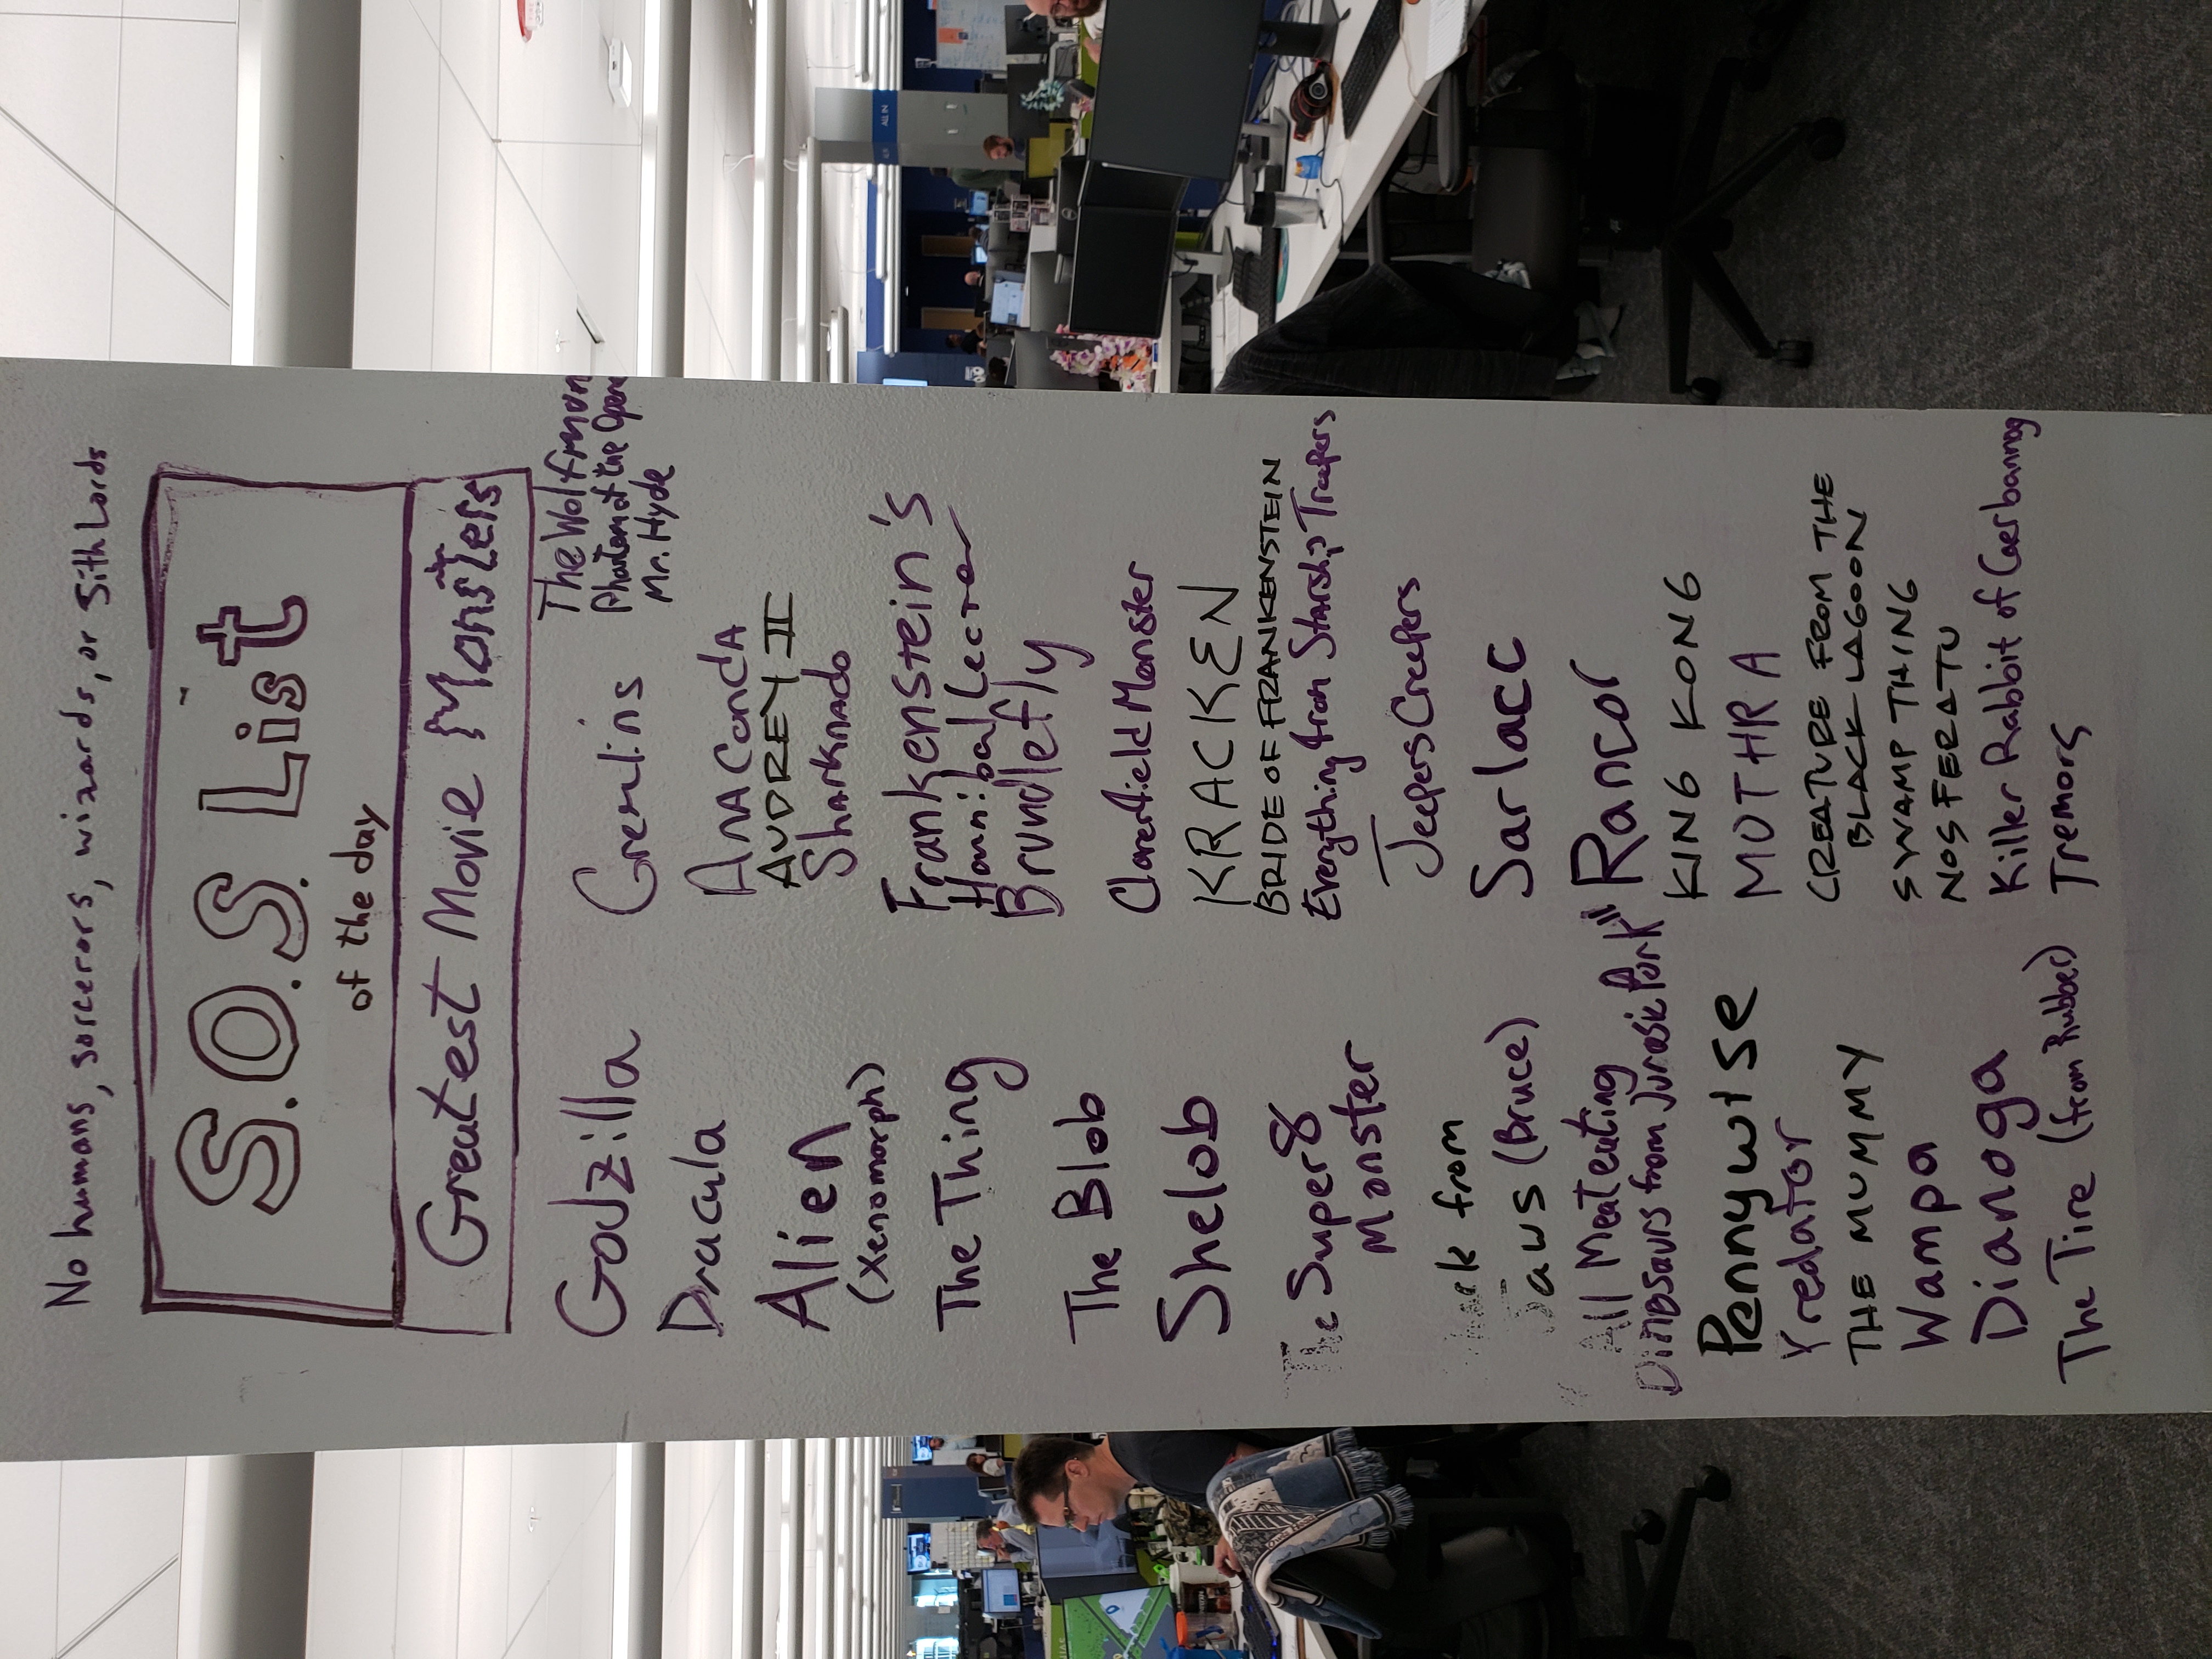 No humans, sorcerors, wizards, or Sith Lords
S.O.S. List
of the day
Greatest Movie Monsters
Godzilla
Dracula
Alien
(Xenomorph)
The Thing
The Blob
Shelob
The Super 8
Monster
from
Jaws (Bruce)
"All Meat eating
Dinosaurs from Jurasic Park"
Pennywise
Predator
THE MUMMY
Wampa
Dianoga
The Tire (from Rubber)
Gremlins
The Wolfman
Phantom of the Opera
Mr. Hyde
Anaconda
AUDREY II
Sharknado
Frankenstein's
Hannibal Lecter
Brundlefly
Cloverfield Monster
KRACKEN
BRIDE OF FRANKENSTEIN
Everything from Starship Troopers
Jeepers Creepers
Sarlacc
Rancor
KING KONG
MOTHRA
CREATURE FROM THE
BLACK LAGOON
SWAMP THING
NOSFERATU
Killer Rabbit of Caerbannog
Tremors
ALL IN